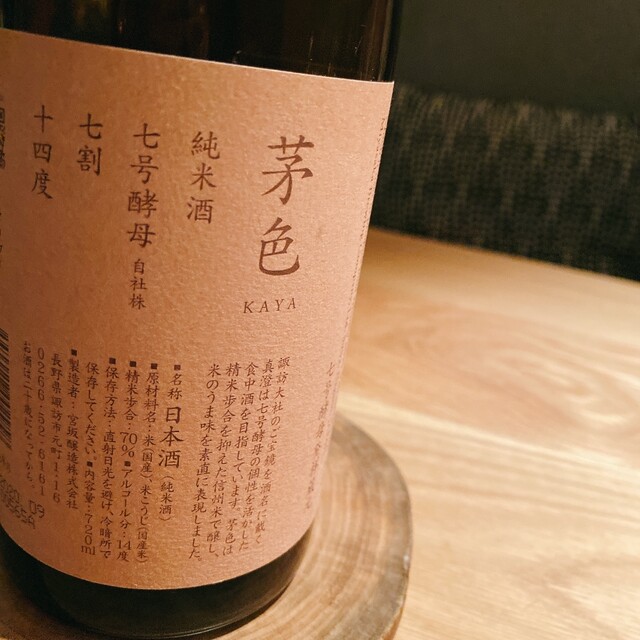 茅色
KAYA
純米酒
七号酵母 自社株
七割
十四度
諏訪大社のご宝鏡を酒名に戴く
真澄は七号酵母の個性を活かした
食中酒を目指しています。茅色は
精米歩合を抑えた信州米で醸し、
米のうま味を素直に表現しました。
■名称 日本酒(純米酒)
■原材料名・米(国産)、米こうじ(国産米)
■精米歩合・70% ■アルコール分・14度
■保存方法・直射日光を避け、冷暗所で
保存してください。■内容量・720ml
■製造者・宮坂醸造株式会社
長野県諏訪市元町1-16
0266-52-6161
お酒は二十歳になってから